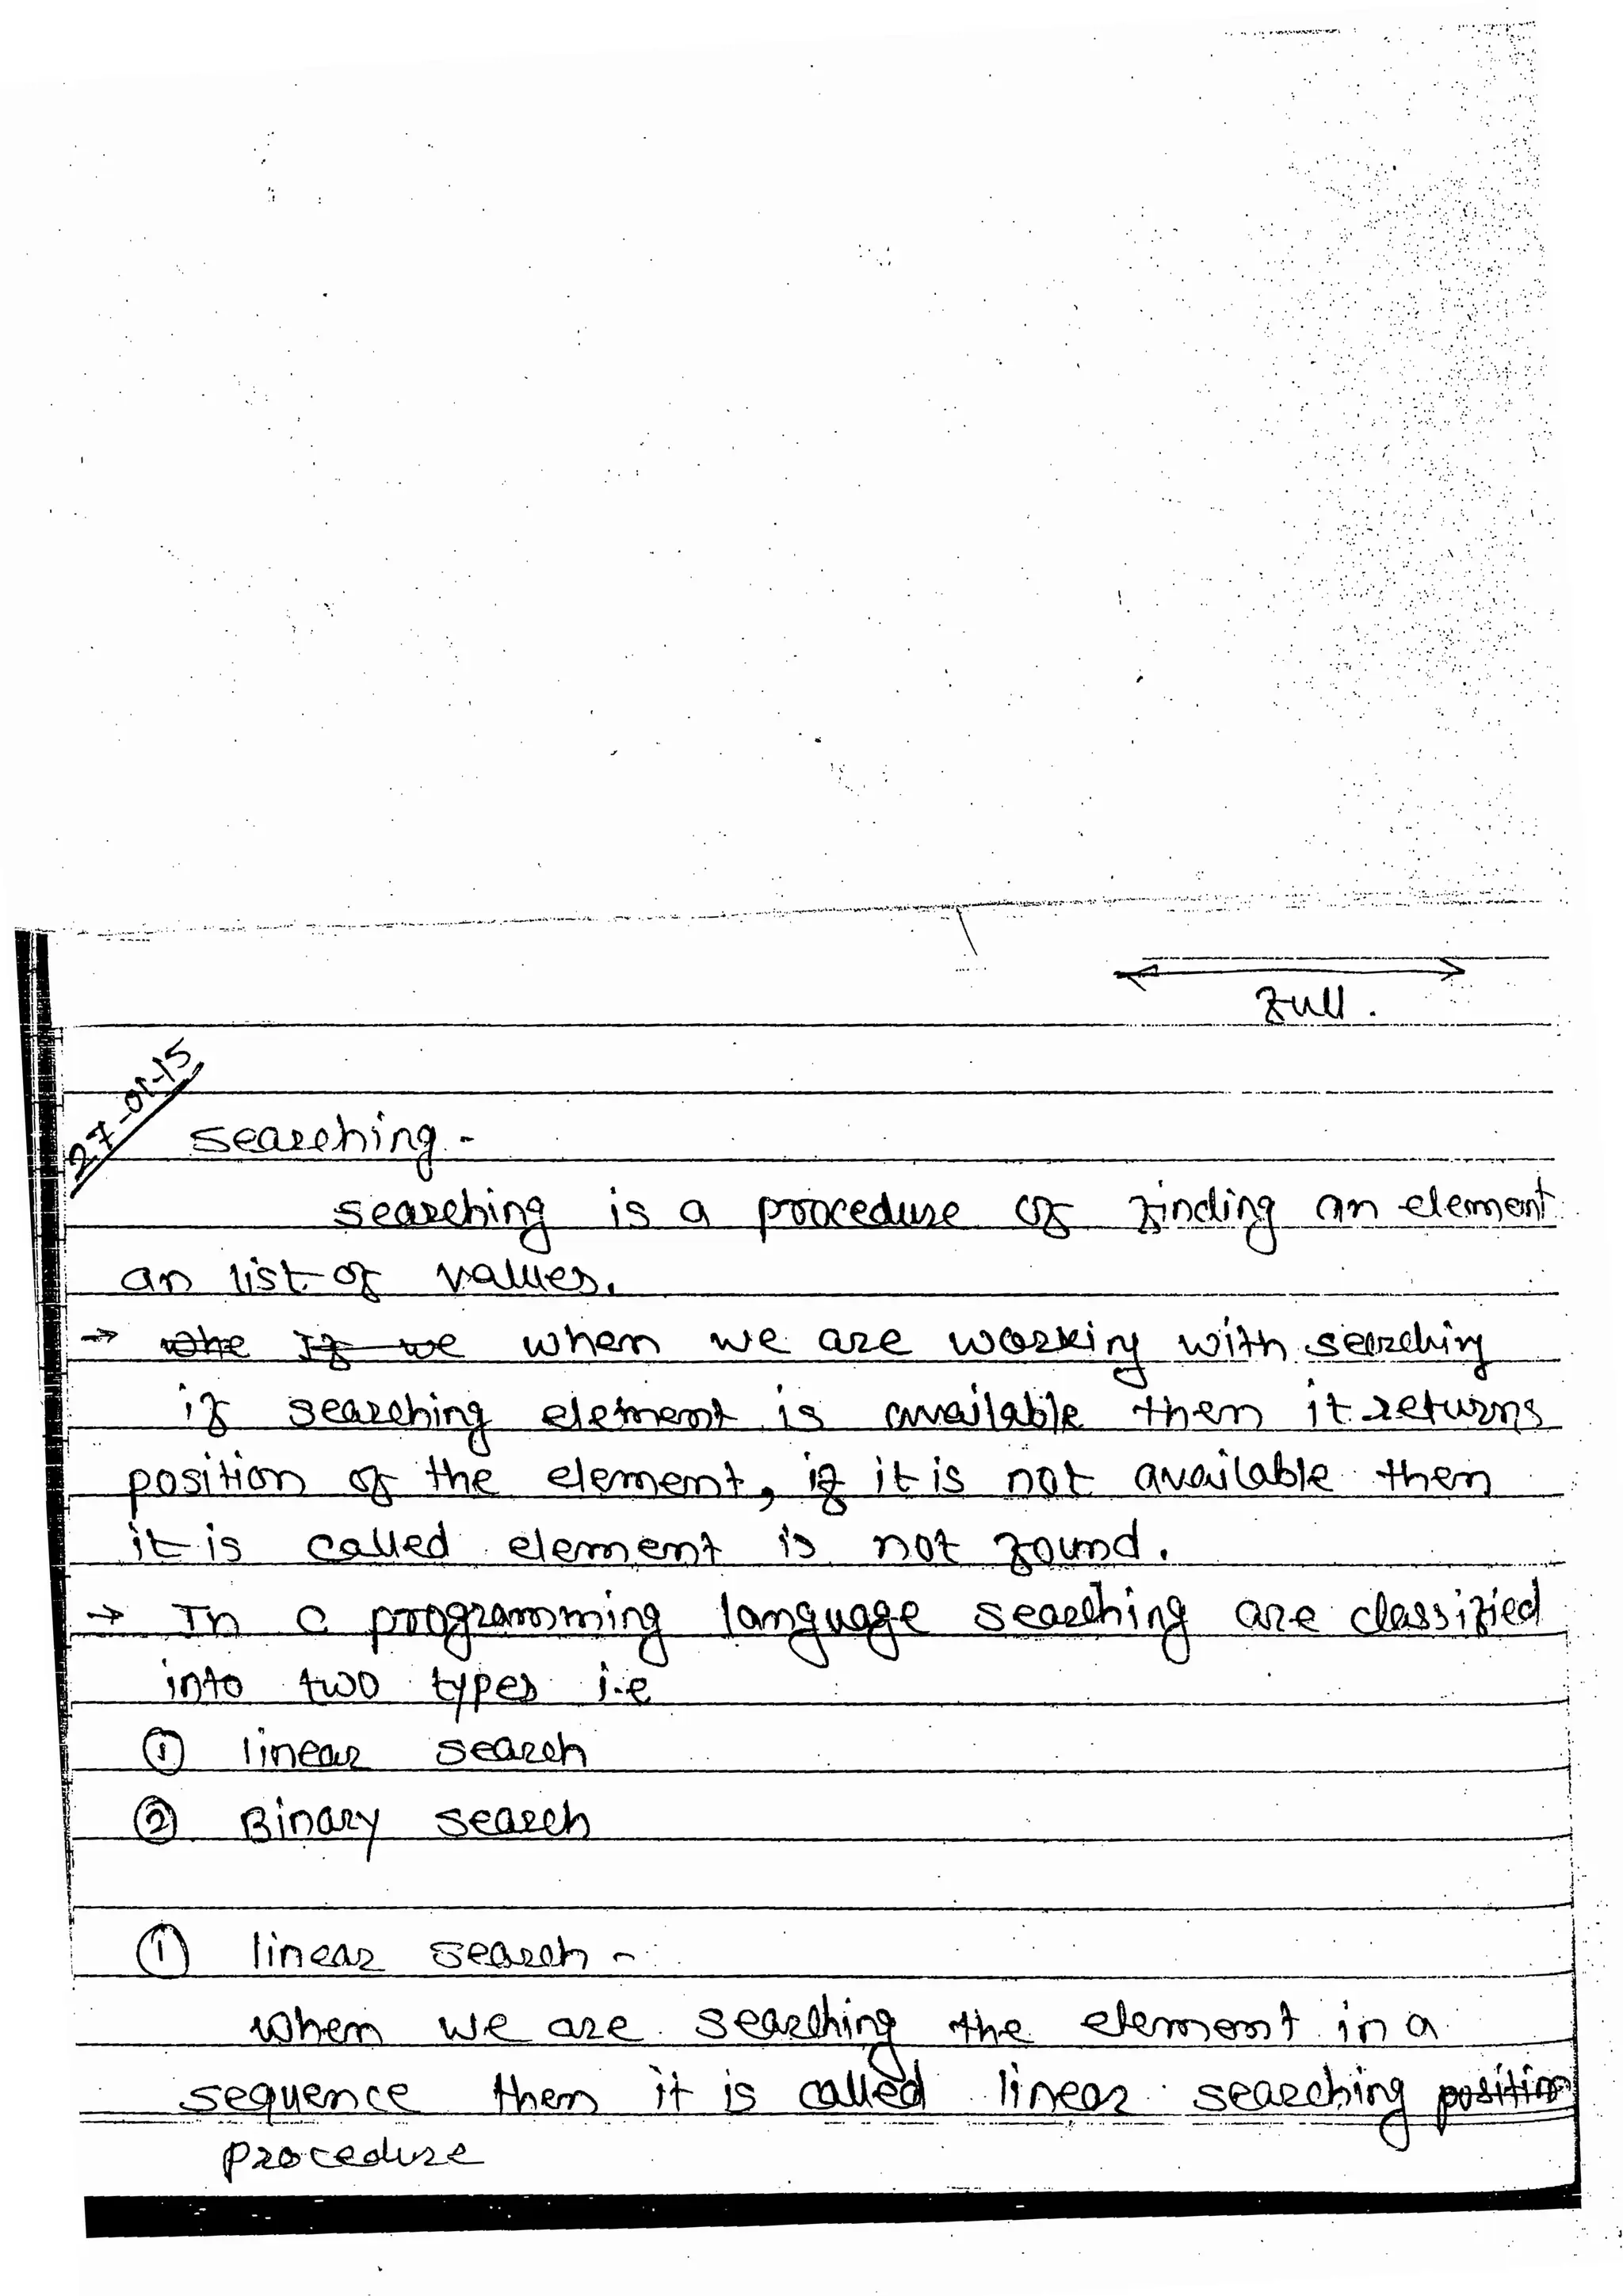 full.
27-01-15
searching -
searching is a procedure of finding an element
an list of values.
→ whe If we when we are working with searching
if searching element is available then it returns
position of the element, if it is not available then
it is called element is not found.
→ In C programming language searching are classified
into two types i.e
① linear search
② Binary search
① linear search -
when we are searching the element in a
sequence then it is called linear searching position
procedure